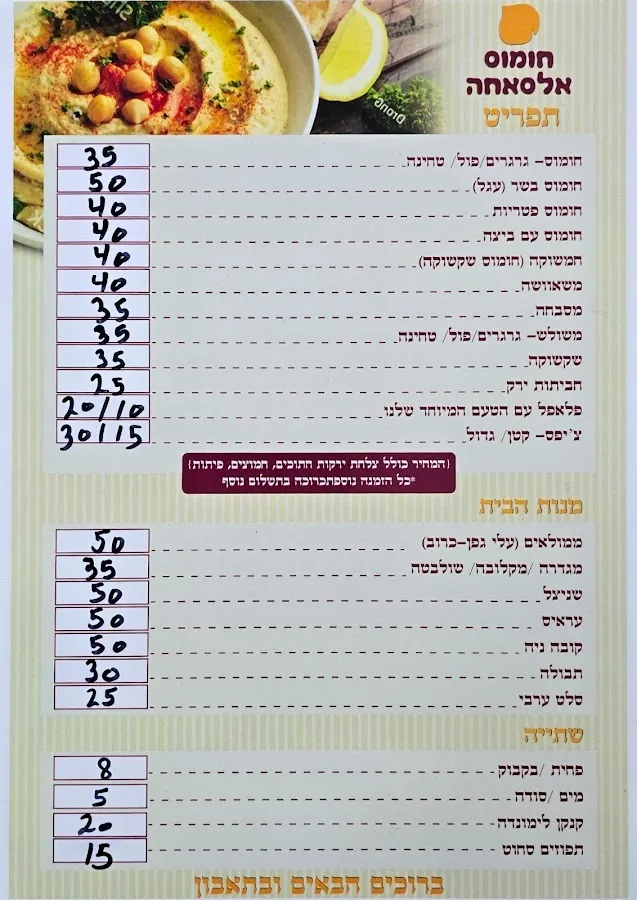 חומוס
אלסאחה
תפריט
חומוס- גרגרים/פול/ טחינה 35
חומוס בשר (עגל) 50
חומוס פטריות 40
חומוס עם ביצה 40
חמשוקה (חומוס שקשוקה) 40
משאוושה 40
מסבחה 35
משולש- גרגרים/פול/ טחינה 35
שקשוקה 35
חביתות ירק 25
פלאפל עם הטעם המיוחד שלנו 20/10
צ'יפס- קטן/ גדול 30/15
{המחיר כולל צלחת ירקות חתוכים, חמוצים, פיתות}
*כל הזמנה נוספתכרוכה בתשלום נוסף
מנות הבית
ממולאים (עלי גפן-כרוב) 50
מגדרה /מקלובה/ שולבטה 35
שניצל 50
עראיס 50
קובה ניה 50
תבולה 30
סלט ערבי 25
שתייה
פחית /בקבוק 8
מים /סודה 5
קנקן לימונדה 20
תפוזים סחוט 15
ברוכים הבאים ובתאבון